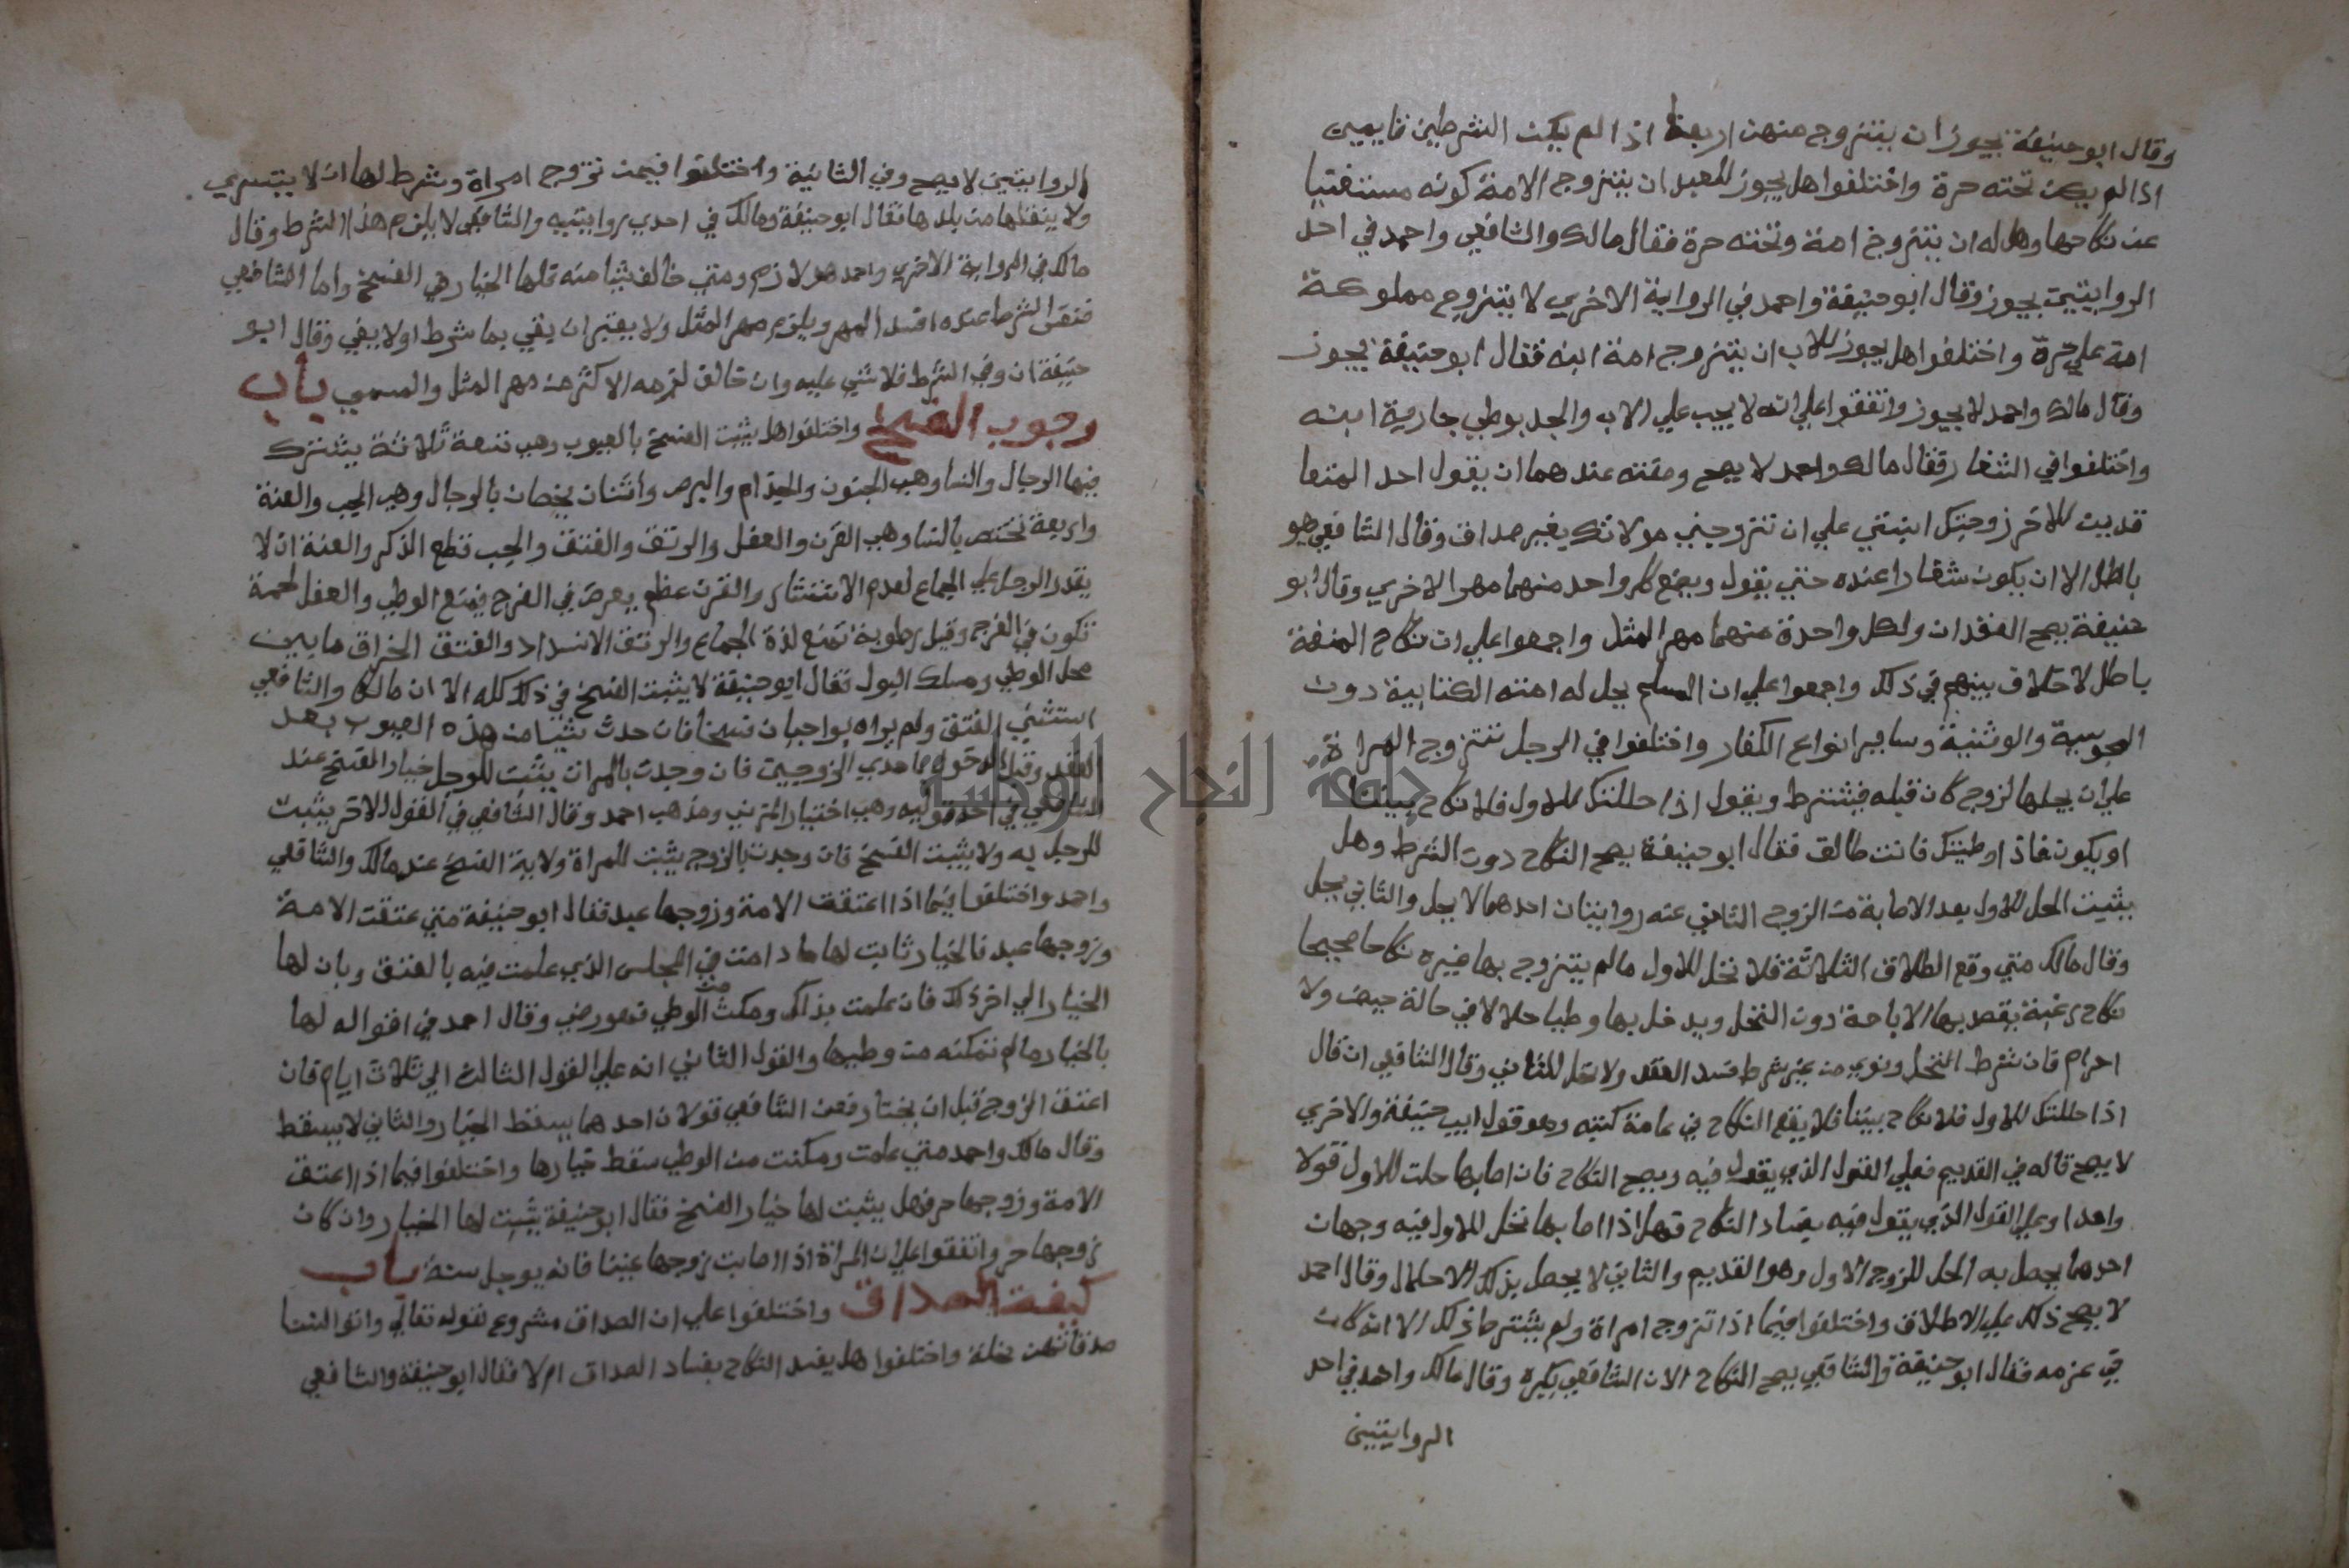 وقال ابو حنيفة يجوز ان يتزوج منهن اربعة اذا لم يكن الشرطين قايمين
اذا لم يكن تحته حرة واختلفوا هل يجوز للعبد ان يتزوج الامة كونه مستغنيا
عن نكاحها وهل له ان يتزوج امة وتحته حرة فقال مالك والشافعي واحمد في احد
الروايتين يجوز وقال ابو حنيفة واحمد في الرواية الاخري لا يتزوج مملوكة
امة علي حرة واختلفوا هل يجوز للاب ان يتزوج امة ابنه فقال ابو حنيفة يجوز
وقال مالك واحمد لا يجوز واتفقوا علي انه لا يجب علي الاب والجد بوطي جارية ابنه
واختلفوا في الشغار فقال مالك واحمد لا يصح وصفته عندهما ان يقول احد المتعا
قدين للاخر زوجتك ابنتي علي ان تزوجيني مولاتك بغير صداق وقال الشافعي هو
باطل الا ان يكون شغارا عنده حتي يقول وبضع كل واحد منهما مهر الاخري وقال ابو
حنيفة يصح العقدان ولكل واحدة منهما مهر المثل واجمعوا علي ان نكاح المتعة
باطل لا خلاف بينهم في ذلك واجمعوا علي ان المسلم يحل له امته الكتابية دون
المجوسية والوثنية وساير انواع الكفار واختلفوا في الرجل تتزوج المراة
علي ان يحلها لزوج كان قبله فيشترط ويقول اذا حللتك للاول فلا نكاح بيننا
او يكون فاذا وطيتك فانت طالق فقال ابو حنيفة يصح النكاح دون الشرط وهل
يثبت الحل للاول بعد الاصابة من الزوج الثاني عنه روايتان احدهما لا يحل والثاني يحل
وقال مالك متي وقع الطلاق الثلاثة فلا تحل للاول ما لم يتزوج بها غيره نكاحا صحيحا
نكاح رغبة يقصد بها الاباحة دون التحل ويدخل بها وطيا حلالا في حالة حيض ولا
احرام فان شرط التحل ونوي من غير شرط فسد العقد ولا تحل للثاني وقال الشافعي ان قال
اذا حللتك للاول فلا نكاح بيننا فلا يقع النكاح في عامة كتبه وهو قول ابي حنيفة والاخري
لا يصح قاله في القديم فعلي القول الذي يقول فيه ويصح النكاح فان اصابها حلت للاول قولا
واحدا وعلي القول الذي يقول فيه بفساد النكاح فهل اذا اصابها تحل للاول فيه وجهان
احدهما يحصل به الحل للزوج الاول وهو القديم والثاني لا يحصل بذلك الاحلال وقال احمد
لا يصح ذلك علي الاطلاق واختلفوا فيما اذا تزوج امراة ولم يشترط ذلك الا انه كان
في عزمه فقال ابو حنيفة والشافعي يصح النكاح الا ان الشافعي يكره وقال مالك واحمد في احد
الروايتين
الروايتين لا يصح وفي الثانية واختلفوا فيمن تزوج امراة وشرط لها ان لا يتسري
ولا ينقلها من بلدها فقال ابو حنيفة ومالك في احدي روايتيه والشافعي لا يلزم هذا الشرط وقال
مالك في الرواية الاخري واحمد هو لازم ومتي خالف شيا منه فلها الخيار في الفسخ واما الشافعي
فنقض الشرط عنده افسد المهر ويلزم مهر المثل ولا يعتبر ان يفي بما شرط او لا يفي وقال ابو
حنيفة ان وفي الشرط فلا شي عليه وان خالف لزمه الاكثر من مهر المثل والمسمي باب
وجوب الفسخ واختلفوا هل يثبت الفسخ بالعيوب وهي تسعة ثلاثة يشترك
فيها الرجال والنسا وهي الجنون والجذام والبرص واثنان يخصان بالرجال وهي الجب والعنة
واربعة تختص بالنسا وهي القرن والعفل والرتق والفتق والجب قطع الذكر والعنة ان لا
يقدر الرجل علي الجماع لعدم الانتشار والقرن عظم يعرض في الفرج فيمنع الوطي والعفل لحمة
تكون في الفرج وقيل رطوبة تمنع لذة الجماع والرتق الانسداد والفتق انخراق ما بين
محل الوطي ومسلك البول فقال ابو حنيفة لا يثبت الفسخ في ذلك كله الا ان مالك والشافعي
استثني الفتق ولم يراه يواجبان فسخا فان حدث شيا من هذه العيوب بعد
العقد وقبل الدخول باحدي الزوجين فان وجدت بالمراة يثبت للرجل خيار الفسخ عند
الشافعي في احد قوليه وهي اختيار المزني ومذهب احمد وقال الشافعي في القول الاخر يثبت
للرجل به ولا يثبت الفسخ فان وجدت بالزوج يثبت للمراة ولاية الفسخ عند مالك والشافعي
واحمد واختلفوا فيما اذا اعتقت الامة وزوجها عبد فقال ابو حنيفة متي عتقت الامة
وزوجها عبد فالخيار ثابت لها ما دامت في المجلس الذي علمت فيه بالعتق وبان لها
الخيار الي اخر ذلك فان علمت بذلك ومكنت من الوطي فهو رضي وقال احمد في اقواله لها
بالخيار ما لم تمكنه من وطيها والقول الثاني انه علي القول الثالث الي ثلاث ايام فان
اعتق الزوج قبل ان يختار فعن الشافعي قولان احدهما يسقط الخيار والثاني لا يسقط
وقال مالك واحمد متي علمت ومكنت من الوطي سقط خيارها واختلفوا فيما اذا اعتق
الامة وزوجها حر فهل يثبت لها خيار الفسخ فقال ابو حنيفة يثبت لها الخيار وان كان
زوجها حر واتفقوا علي ان المراة اذا اصابت زوجها عنينا فانه يوجل سنة باب
كيفة الصداق واختلفوا علي ان الصداق مشروع لقوله تعالي واتوا النسا
صدقاتهن نحلة واختلفوا هل يفسد النكاح بفساد الصداق ام لا فقال ابو حنيفة والشافعي
جامعة النجاح الوطنية